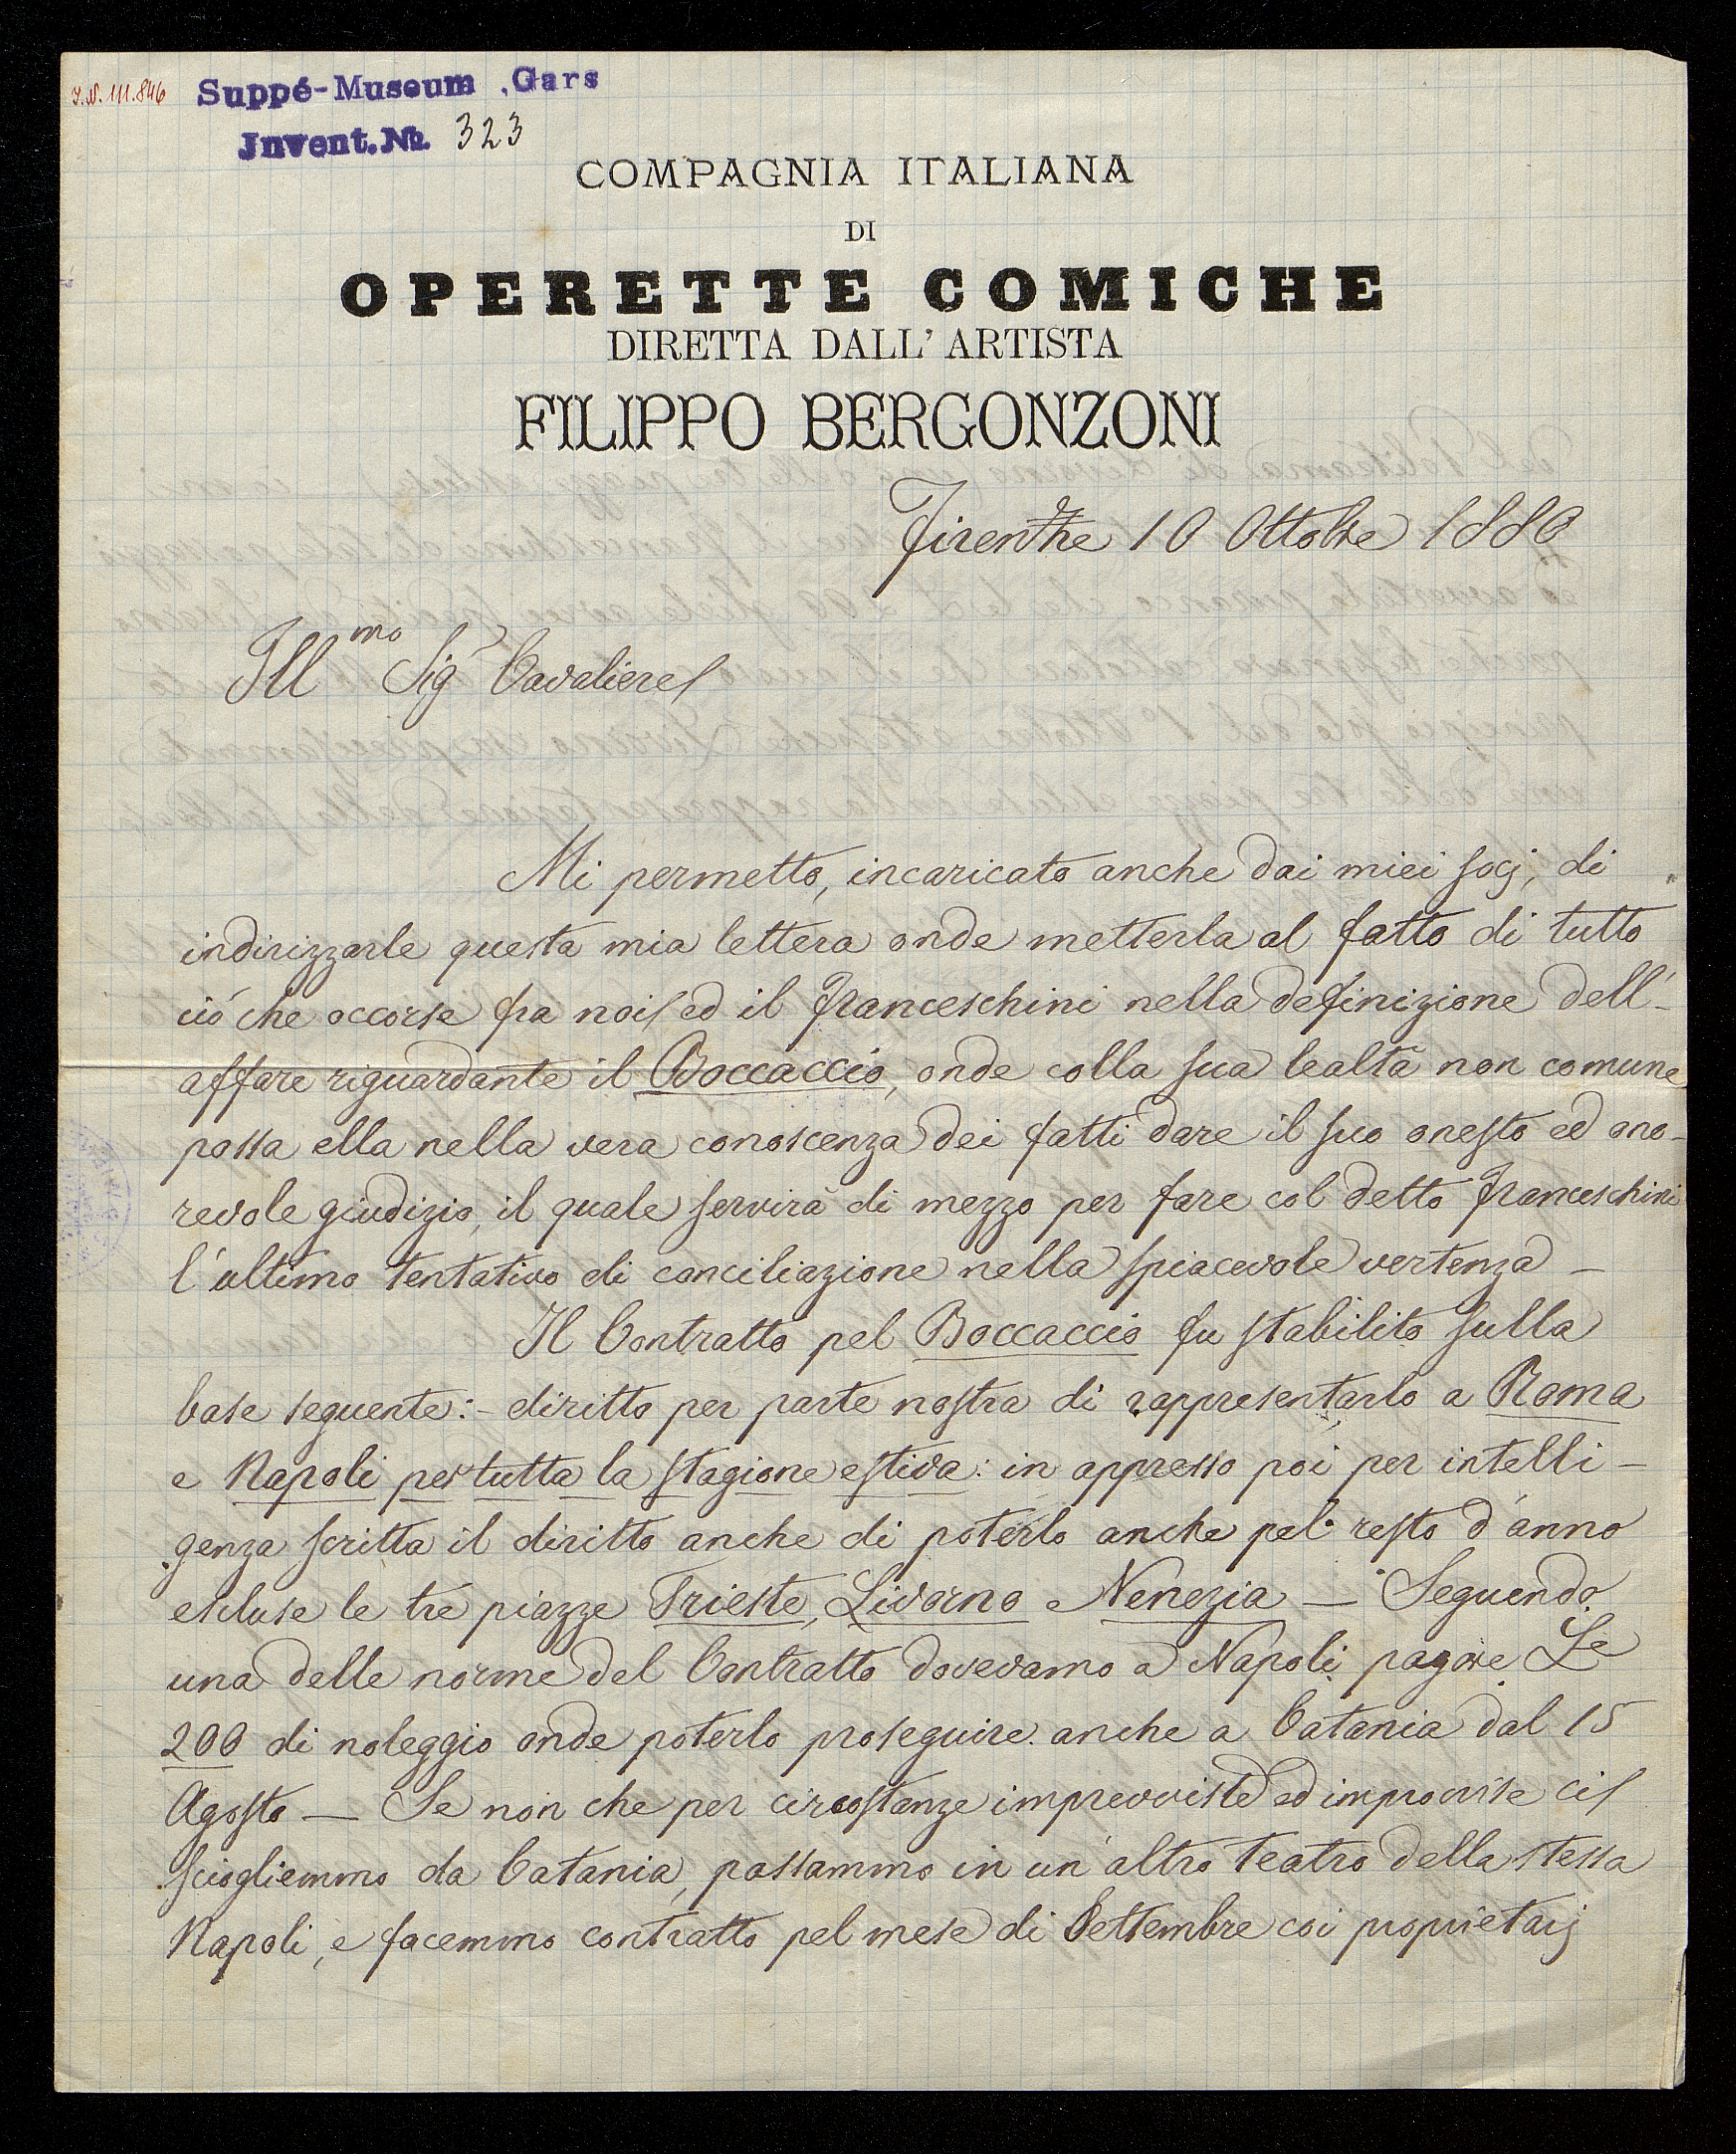 J.N. 111.846
Suppé-Museum, Gars
Invent.No. 323
COMPAGNIA ITALIANA
DI
OPERETTE COMICHE
DIRETTA DALL'ARTISTA
FILIPPO BERGONZONI
Firenze 10 Ottobre 1880
Ill.mo Sigr Cavaliere
Mi permetto, incaricato anche dai miei socj, di
indirizzarle questa mia lettera onde metterla al fatto di tutto
ciò che occorse fra noi ed il Franceschini nella definizione dell'-
affare riguardante il Boccaccio, onde colla sua lealtà non comune
possa ella nella vera conoscenza dei fatti dare il suo onesto ed ono-
revole giudizio, il quale servirà di mezzo per fare col detto Franceschini
l'ultimo tentativo di conciliazione nella spiacevole vertenza —
Il Contratto pel Boccaccio fu stabilito sulla
base seguente:- diritto per parte nostra di rappresentarlo a Roma
e Napoli per tutta la stagione estiva: in appresso poi per intelli-
genza scritta il diritto anche di poterlo anche pel resto d'anno
escluse le tre piazze Trieste, Livorno e Venezia — Seguendo
una delle norme del Contratto dovevamo a Napoli pagare Le
200 di noleggio onde poterlo proseguire anche a Catania dal 15
Agosto — Se non che per circostanze imprevviste ed improvvise ci
sciogliemmo da Catania, passammo in un'altro teatro della stessa
Napoli, e facemmo contratto pel mese di Settembre coi proprietarj